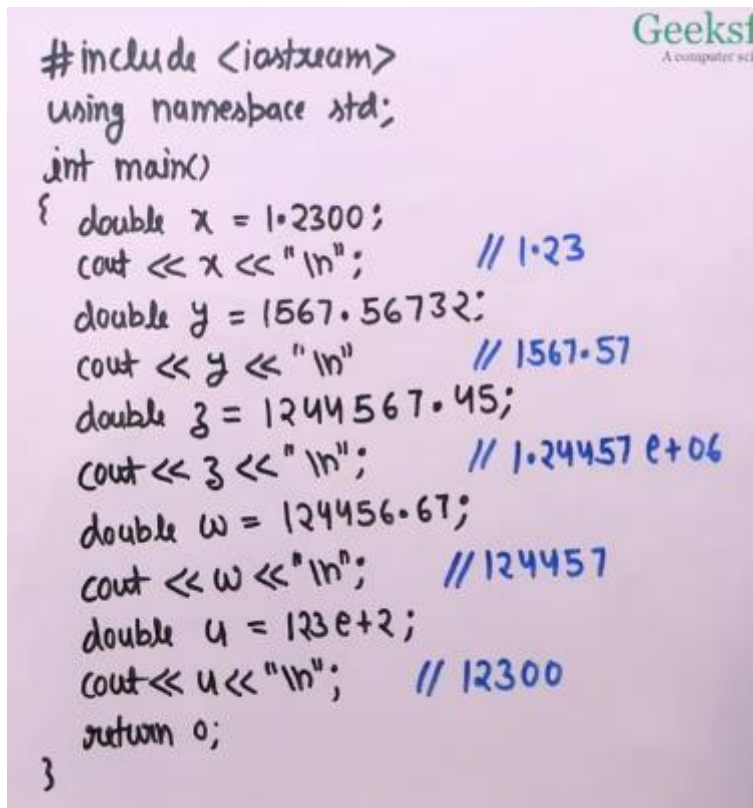 Geeksf
A computer sci
#include <iostream>
using namespace std;
int main()
{ double x = 1.2300;
cout << x << "\n"; // 1.23
double y = 1567.56732;
cout << y << "\n" // 1567.57
double z = 1244567.45;
cout << z << "\n"; // 1.24457 e+06
double w = 124456.67;
cout << w << "\n"; // 124457
double u = 123e+2;
cout << u << "\n"; // 12300
return 0;
}